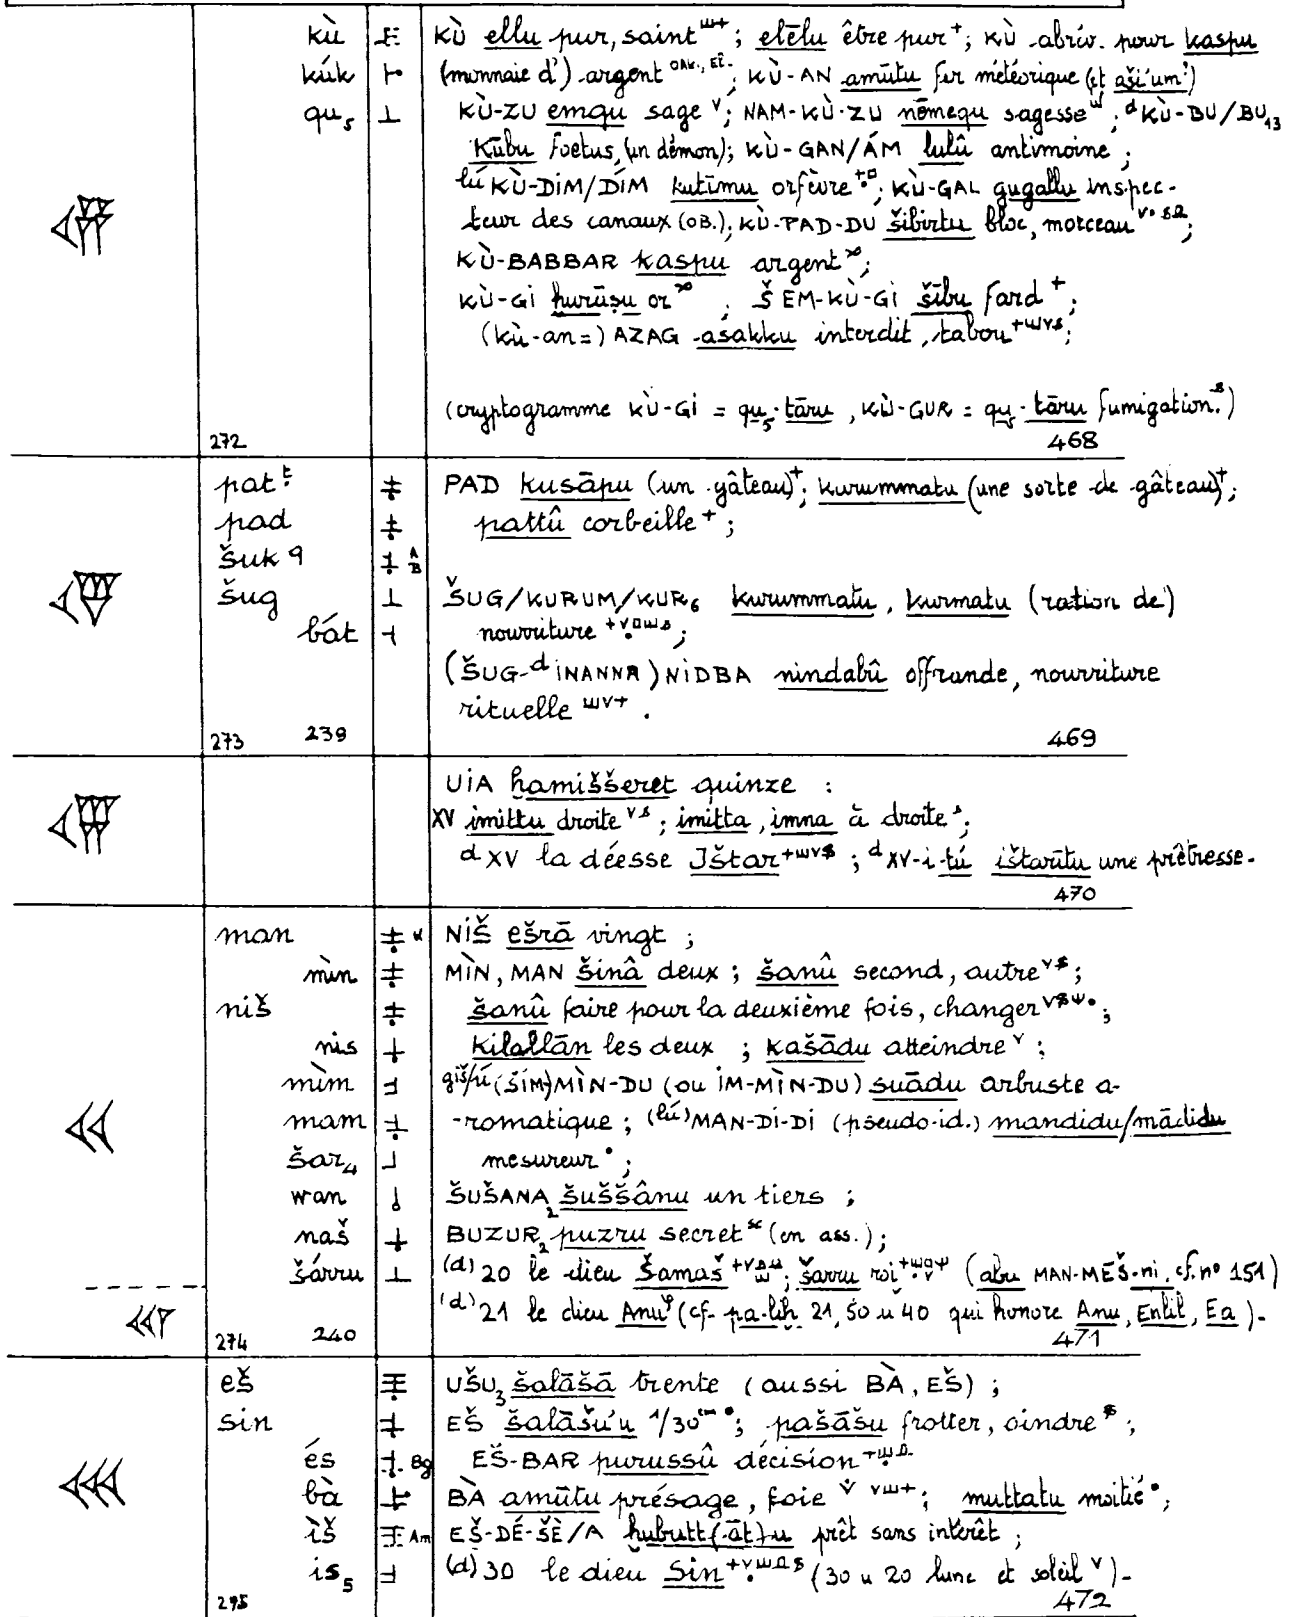 kù KÙ ellu pur, saint ; elēlu être pur + ; KÙ abrév. pour kaspu
kúk (monnaie d') argent OAk., El. ; KÙ-AN amūtu fer météorique (et aši'um?)
qu₅ KÙ-ZU emqu sage v ; NAM-KÙ-ZU nēmequ sagesse ; ᵈKÙ-BU/BU₁₃
Kūbu foetus, (un démon) ; KÙ-GAN/ÁM lulû antimoine ;
lúKÙ-DIM/DÍM kutīmu orfèvre ; KÙ-GAL gugallu inspec-
teur des canaux (OB.) ; KÙ-PAD-DU šibirtu bloc, morceau ;
KÙ-BABBAR kaspu argent ;
KÙ-GI ḫurāṣu or ; ŠEM-KÙ-GI šību fard + ;
(kù-an =) AZAG asakku interdit, tabou ;
(cryptogramme KÙ-GI = qu₅-tāru, KÙ-GUR = qu₅-tāru fumigation.)
272 468
pat PAD kusāpu (un gâteau)+ ; kurummatu (une sorte de gâteau)+ ;
pad pattû corbeille + ;
šuk q A B
šug ŠUG/KURUM/KUR₆ kurummatu, kurmatu (ration de)
bát nourriture ;
(ŠUG-ᵈINANNA) NIDBA nindabû offrande, nourriture
rituelle .
273 239 469
UIA ḫamiššeret quinze :
XV imittu droite ; imitta, imna à droite ;
ᵈXV la déesse Ištar ; ᵈXV-i-tú ištarītu une prêtresse.
470
man K NIŠ ešrā vingt ;
mìn MÌN, MAN šinâ deux ; šanû second, autre ;
niš šanû faire pour la deuxième fois, changer ;
nis kilallān les deux ; kašādu atteindre v ;
mìm giš/ú(ŠIM)MÌN-DU (ou IM-MÌN-DU) suādu arbuste a-
mam -romatique ; (lú)MAN-DI-DI (pseudo-id.) mandidu/mādidu
šar₄ mesureur ;
wan ŠUŠANA₂ šuššânu un tiers ;
naš BUZUR₂ puzru secret (en ass.) ;
šárru (d) 20 le dieu Šamaš ; šarru roi (abu MAN-MEŠ-ni, cf. n° 151)
(d) 21 le dieu Anu (cf. pa-liḫ 21, 50 u 40 qui honore Anu, Enlil, Ea).
274 240 471
eš UŠU₃ šalāšā trente (aussi BÀ, EŠ) ;
sin EŠ šalāšu'u 1/30 ; pašāšu frotter, oindre ;
és Bg EŠ-BAR purussû décision
bà BÀ amūtu présage, foie ; muttatu moitié ;
ìš Am EŠ-DÉ-ŠÈ/A ḫubutt(-āt)u prêt sans intérêt ;
is₅ (d) 30 le dieu Sin (30 u 20 lune et soleil v).
295 472